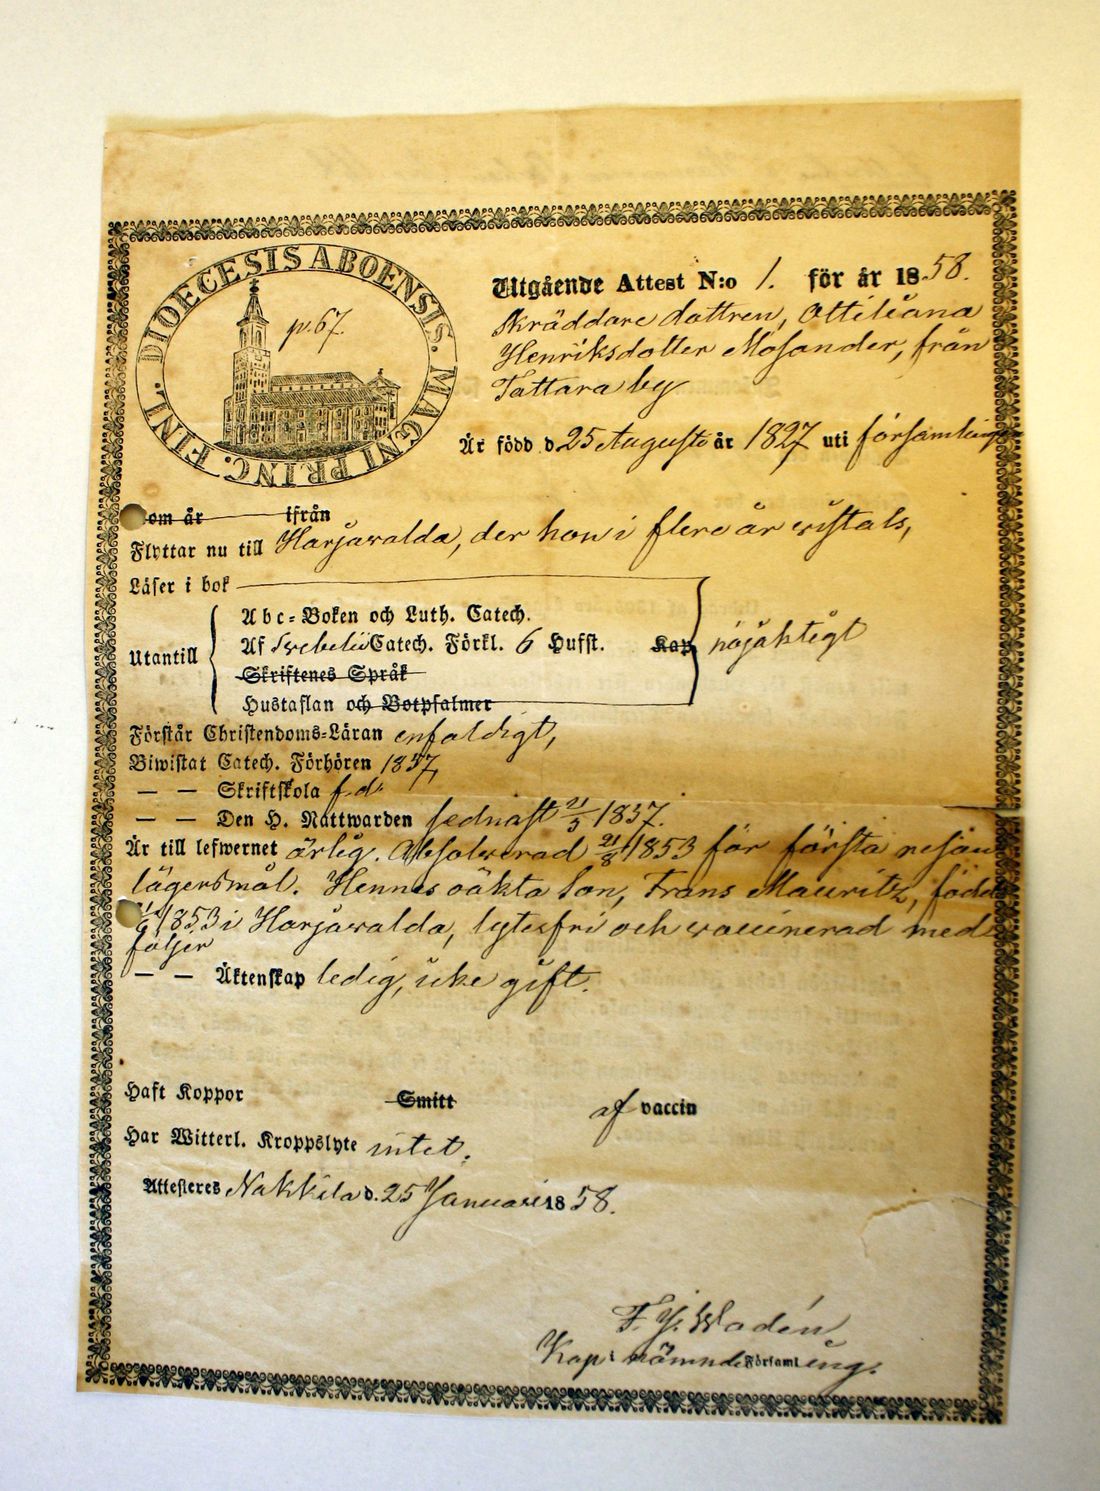 DIOECESIS ABOENSIS. MAGNI PRINC. FINL.
p. 67.
Utgående Attest N:o 1. för år 1858.
Skräddare dottren, Ottiliana
Henriksdotter Mosander, från
Tattara by
Är född d. 25 Augusti år 1827 uti församlingen
om år ifrån
Flyttar nu till Harjawalda, der hon i flere år wistats,
Läser i bok
Utantill
Abc-Boken och Luth. Catech.
Af Swebelii Catech. Förkl. 6 Hufst. Kap.
nöjaktigt
Skriftenes Språk
Hustaflan och Botpsalmer
Förstår Christendoms-Läran enfaldigt,
Biwistat Catech. Förhören 1857,
— — Skriftskola f. d.
— — Den H. Nattwarden sednast 21/5 1857.
Är till lefwernet ärlig. Absolverad 21/8 1853 för första resan
lägersmål. Hennes oäkta Son, Frans Mauritz, född
1853 i Harjawalda, lytesfri och waccinerad med
följer
— — Äktenskap ledig, icke gift.
Haft Koppor Smitt af vaccin
Har Witterl. Kroppslyte intet.
Attesteras Nakkila d. 25 Januari 1858.
F. J. Wadén
Kap i nämnde Församling.